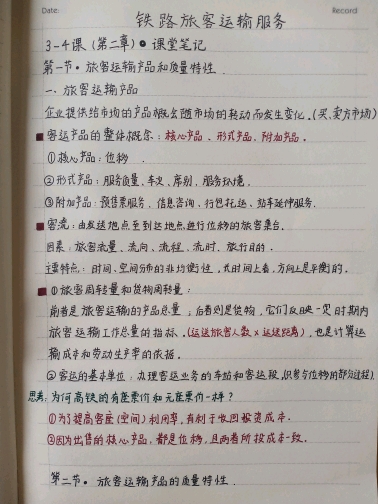 Date:
Record
铁路旅客运输服务
3-4课(第二章)•课堂笔记
第一节•旅客运输产品和质量特性.
一、旅客运输产品
企业提供给市场的产品概念随市场的转动而发生变化.(买、卖方市场)
客运产品的整体概念:核心产品、形式产品、附加产品.
①核心产品:位移.
②形式产品:服务质量、车次、席别、服务环境.
③附加产品:预售票服务、信息咨询、行包托运、站车延伸服务.
客流:由发送地点至到达地点进行位移的旅客集合.
因素:旅客流量、流向、流程、流时、旅行目的.
主要特点:时间、空间分布的非均衡性,长时间上看,方向上是平衡的.
①旅客周转量和货物周转量:
前者是旅客运输的产品总量;后者则是货物,它们反映一定时期内
旅客运输工作总量的指标.(运送旅客人数×运送距离),也是计算运
输成本和劳动生产率的依据.
②客运的基本单位:办理客运业务的车站和客运段.(只参与位移的部分过程)
思考:为何高铁的有座票价和无座票价一样?
①为了提高客座(空间)利用率,有利于收回投资成本.
②因为出售的核心产品,都是位移,且两者所投成本一致.
第二节•旅客运输产品的质量特性.